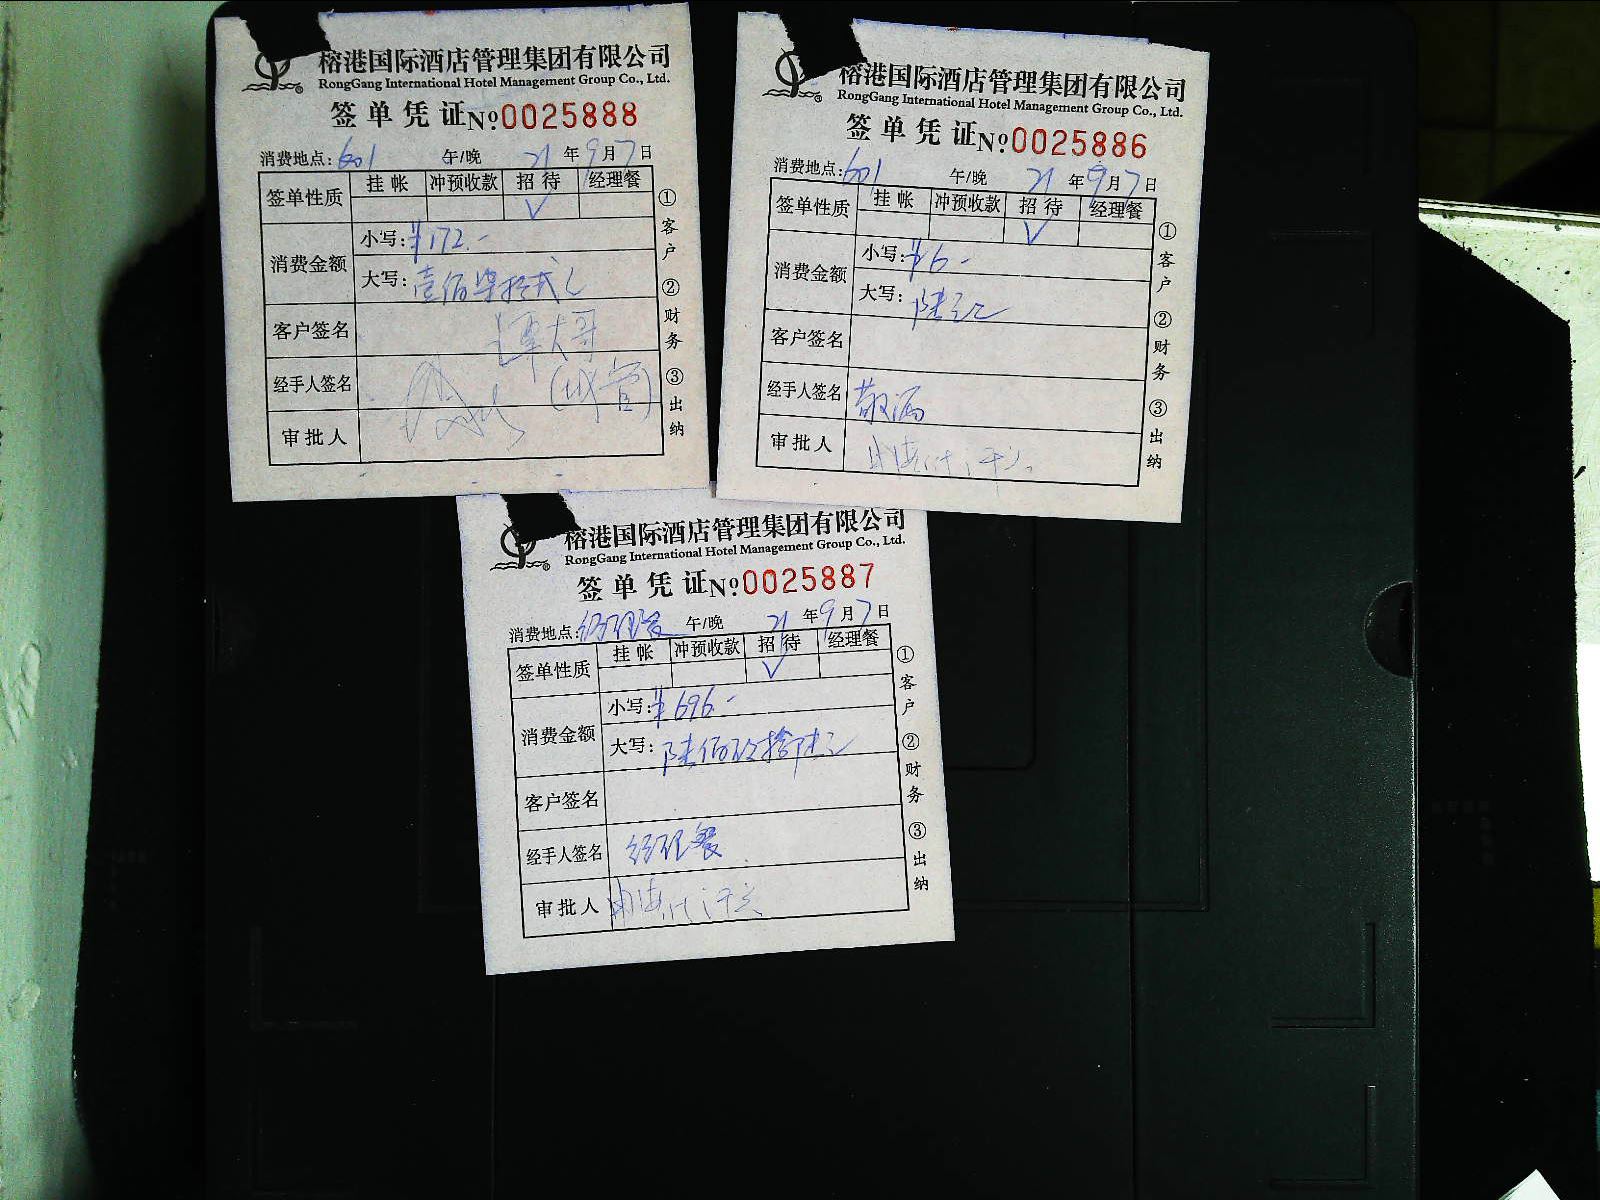 榕港国际酒店管理集团有限公司
RongGang International Hotel Management Group Co., Ltd.
签单凭证 No 0025888
消费地点: 601 午/晚 21 年 9 月 7 日
签单性质 挂帐 冲预收款 招待 经理餐
√
消费金额 小写: ¥172.-
大写: 壹佰柒拾贰元
客户签名 谭大哥
经手人签名 (城管)
审批人
①客户 ②财务 ③出纳
榕港国际酒店管理集团有限公司
RongGang International Hotel Management Group Co., Ltd.
签单凭证 No 0025886
消费地点: 601 午/晚 21 年 9 月 7 日
签单性质 挂帐 冲预收款 招待 经理餐
√
消费金额 小写: ¥6.-
大写: 陆元
客户签名
经手人签名 敬酒
审批人
①客户 ②财务 ③出纳
榕港国际酒店管理集团有限公司
RongGang International Hotel Management Group Co., Ltd.
签单凭证 No 0025887
消费地点: 经理餐 午/晚 21 年 9 月 7 日
签单性质 挂帐 冲预收款 招待 经理餐
√
消费金额 小写: ¥696.-
大写: 陆佰玖拾陆元
客户签名
经手人签名 经理餐
审批人
①客户 ②财务 ③出纳